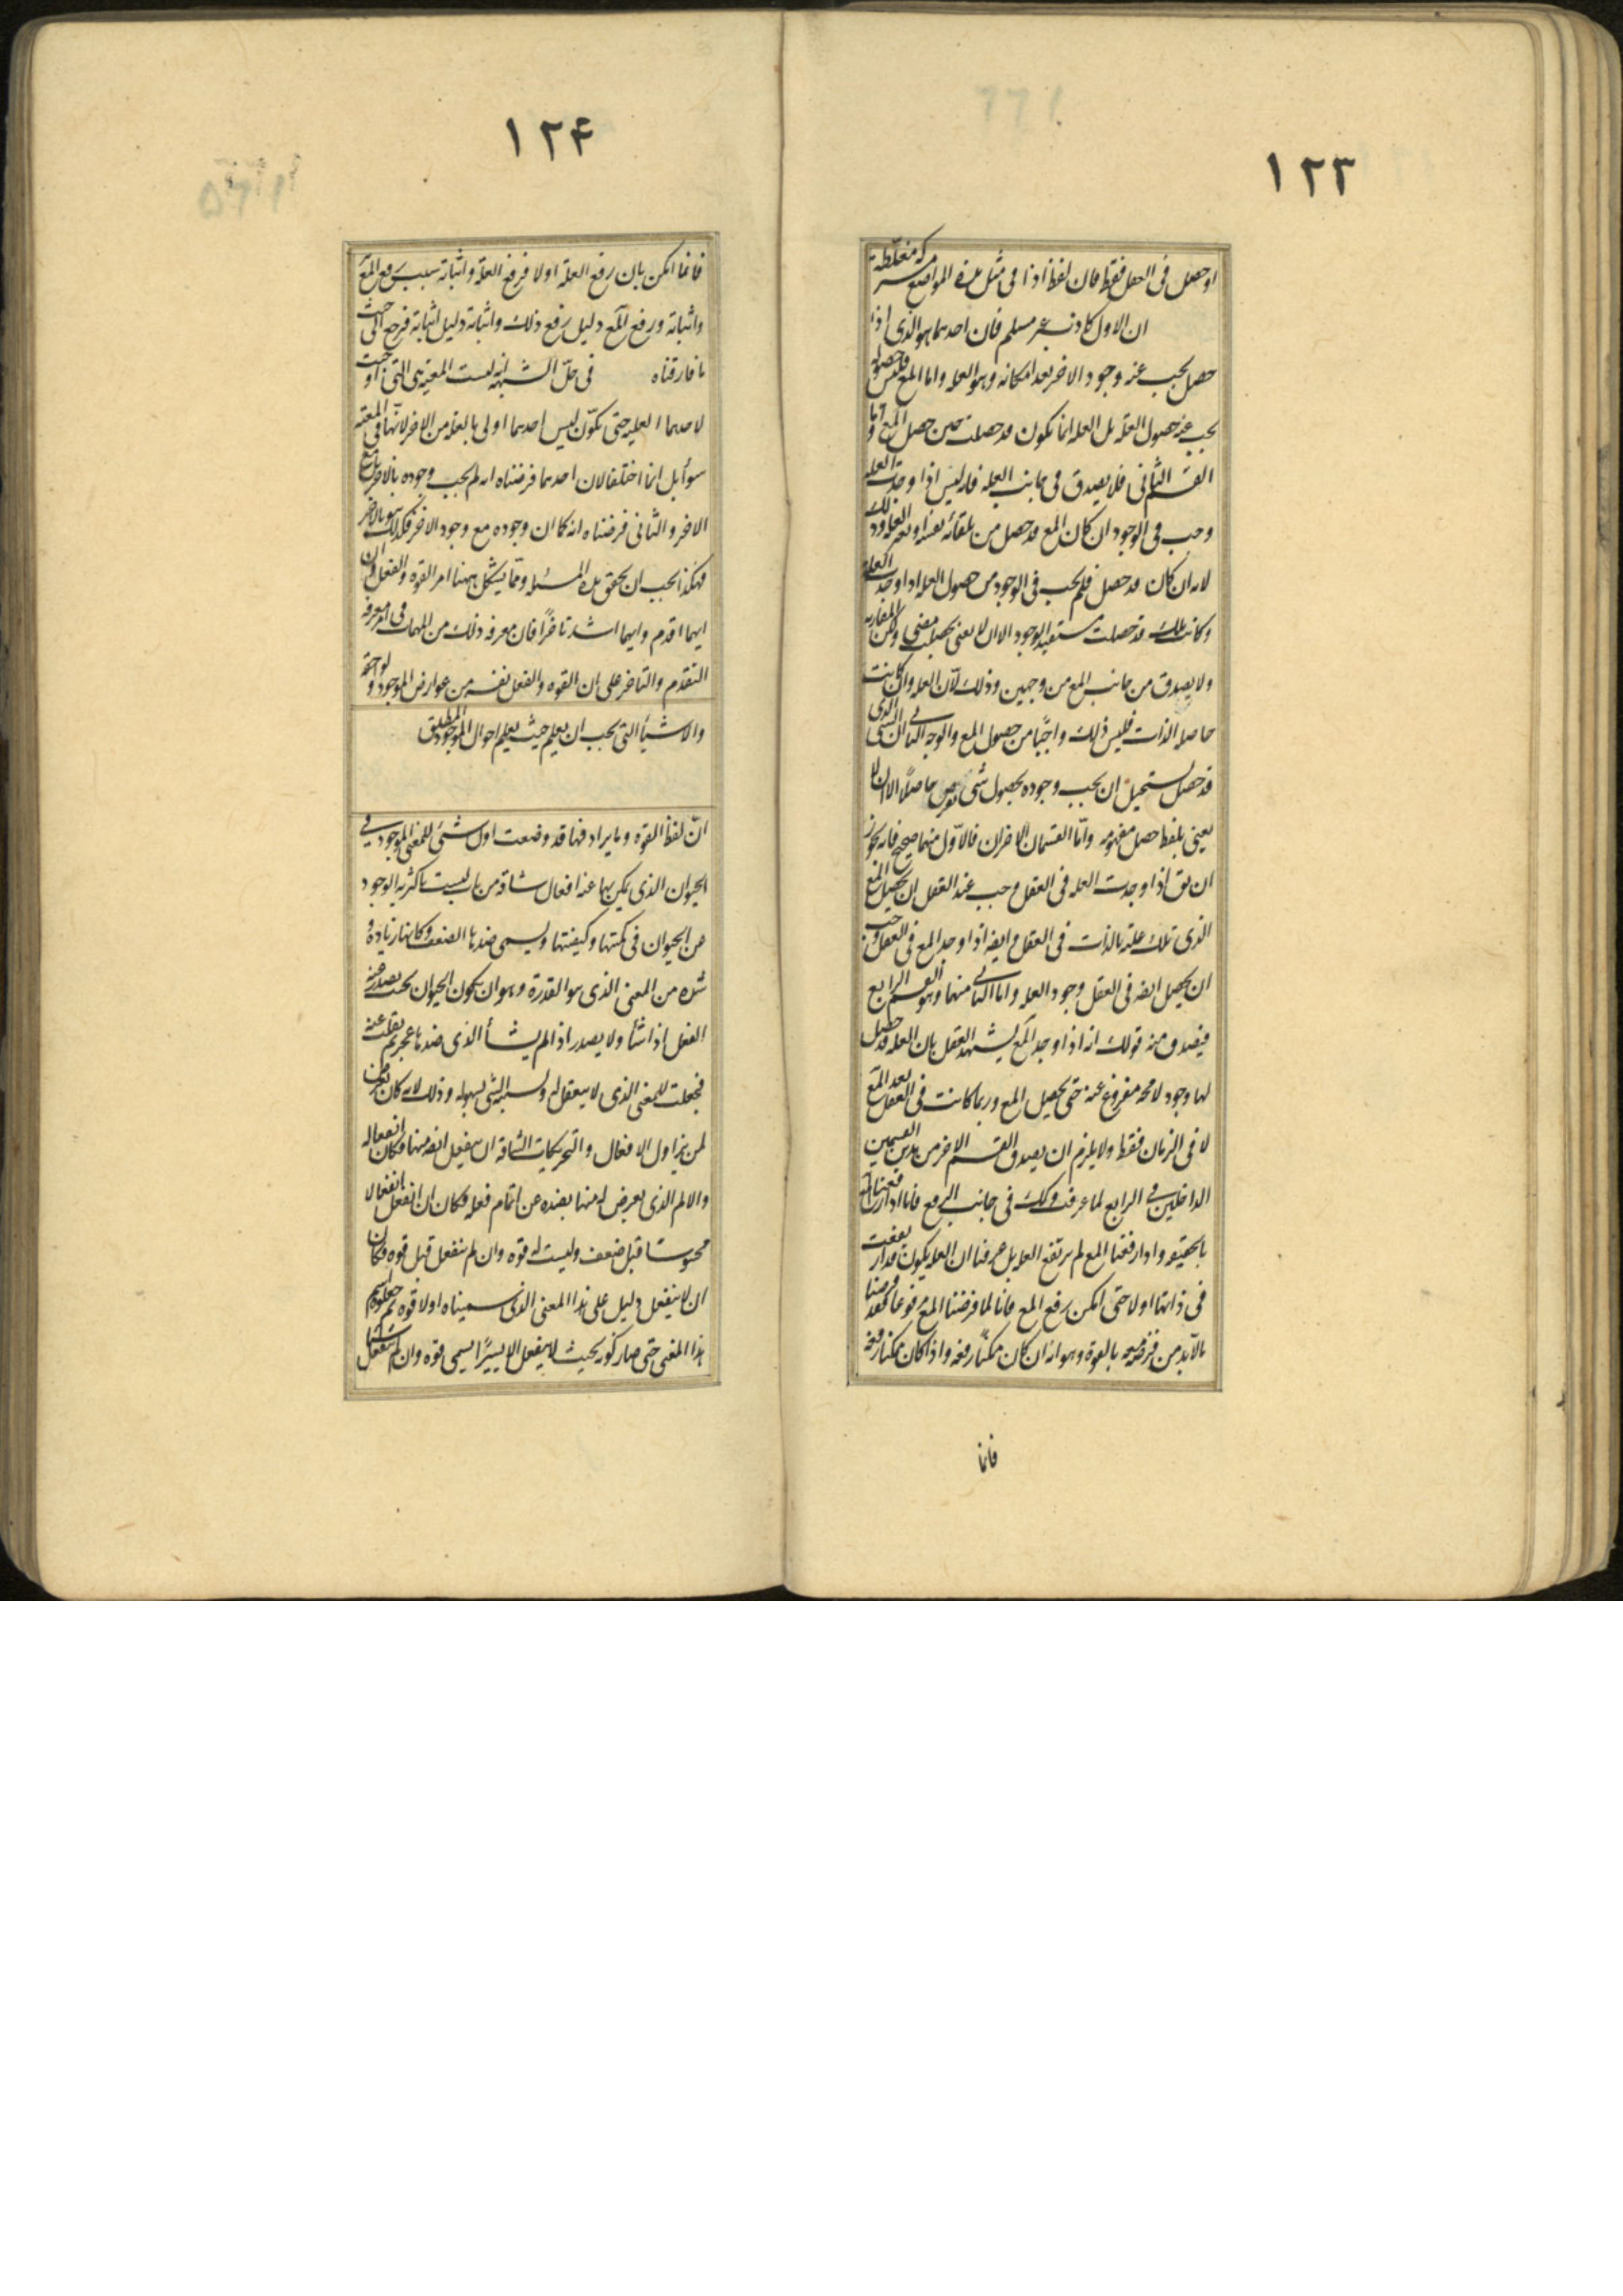 ١٢٣
او حصل فى العقل فقط فان لفظة اذا فى مثل هذه المواضع مشتركة مغلطة
ان الاول كاذب غير مسلم فان احدهما هو الذى اذا
حصل يجب عنه وجود الاخر بعد امكانه وهو العلة واما المع فليس حصوله
يجب عنه حصول العلة بل العلة انما تكون قد حصلت حين حصل المع واما
القسم الثانى فلا يصدق فى جانب العلة فانه ليس اذا وجدت العلة
وجب فى الوجود ان كان المع قد حصل من تلقاء نفسه او بغير العلة وذلك
لانه ان كان قد حصل فلم يجب فى الوجود من حصول العلة اذا وجدت العلة
وكانت تلك قد حصلت مستعيد الوجود الا ان لا يعنى بحصلت مضى ولكن المقارنة
ولا يصدق من جانب المع من وجهين وذلك لان العلة وان كانت
حاصلة الذات فليس ذلك واجبا من حصول المع والوجه الثانى ان الشئ الذى
قد حصل يستحيل ان يجب وجوده بحصول شئ يفرض حاصلا الا ان لا
يعنى بلفظ حصل مفهومه واما القسمان الاخران فالاول منهما صحيح فانه يجوز
ان يق اذا وجدت العلة فى العقل وجب عند العقل ان يحصل المع
الذى تلك علته بالذات فى العقل وايضه اذا وجد المع فى العقل وجب
ان يحصل ايضه فى العقل وجود العلة واما الثانى منهما وهو القسم الرابع
فيصدق منه قولك انه اذا وجد المع يشهد العقل بان العلة قد حصل
لها وجود لا محه مفروغ عنه حتى يحصل المع وربما كانت فى العقل بعد المع
لا فى الزمان فقط ولا يلزم ان يصدق القسم الاخر من هذين القسمين
الداخلين فى الرابع لما عرفت وكك فى جانب الرفع فانا اذا رفعنا
بالحقيقة واذا رفعنا المع لم يرتفع العلة بل عرفنا ان العلة يكون قد ارتفعت
فى ذاتها اولا حتى امكن رفع المع فانا لما فرضنا المع مرفوعا فقد فرضنا
ما لابد من فرضه معه بالقوة وهو انه ان كان ممكنا رفعه واذا كان ممكنا رفعه
فانما
١٢۴
فانما امكن بان رفع العلة اولا فرفع العلة واثباته سبب رفع المع
واثباته ورفع المع دليل رفع ذلك واثباته دليل اثباته فنرجع الى حيث
ما فارقناه فى حل الشبهة انه ليست المعية هى التى اوجبت
لاحدهما العلية حتى تكون ليس احدهما اولى بالعلة من الاخر لانهما فى المعية
سوأ بل انما اختلفا لان احدهما فرضناه انه لم يجب وجوده بالاخر بل مع
الاخر والثانى فرضناه انه كما ان وجوده مع وجود الاخر فكذلك هو بالاخر
فهكذا يجب ان يحقق هذه المسئلة ومما يشكل ههنا امر القوة والفعل وان
ايهما اقدم وايهما اشد تاخرا فان معرفة ذلك من المهمات فى امر معرفة
التقدم والتاخر على ان القوة والفعل نفسه من عوارض الموجود ولواحقه
والاشيأ التى يجب ان يعلم حيث يعلم احوال الموجود المطلق
ان لفظة القوة وما يرادفها قد وضعت اول شئ للمعنى الموجود فى
الحيوان الذى يمكن بها عنه افعال شاقة من باب ليست باكثرية الوجود
من الحيوان فى كميتها وكيفيتها ويسمى ضدها الضعف وكانها زيادة و
شدة من المعنى الذى هو القدرة وهو ان يكون الحيوان بحيث يصدر عنه
الفعل اذا شأ ولا يصدر اذا لم يشأ الذى ضدها عجز ثم نقلت عنه
فجعلت للمعنى الذى لا ينفعل له وبسببه الشئ بسهولة وذلك لانه كان يعرض
لمن يزاول الافعال والتحريكات الشاقة ان ينفعل ايضه منها وكان انفعاله
والالم الذى يعرض له منها يصده عن اتمام فعله فكان ان انفعل انفعالا
محسوسا قيل ضعف وليست له قوة وان لم ينفعل قيل قوة فكان
ان لا ينفعل دليل على هذا المعنى الذى سميناه اولا قوة ثم جعلوه اسم
هذا المعنى حتى صار كونه بحيث لا ينفعل الا يسيرا يسمى قوة وان لم يفعل شيئا